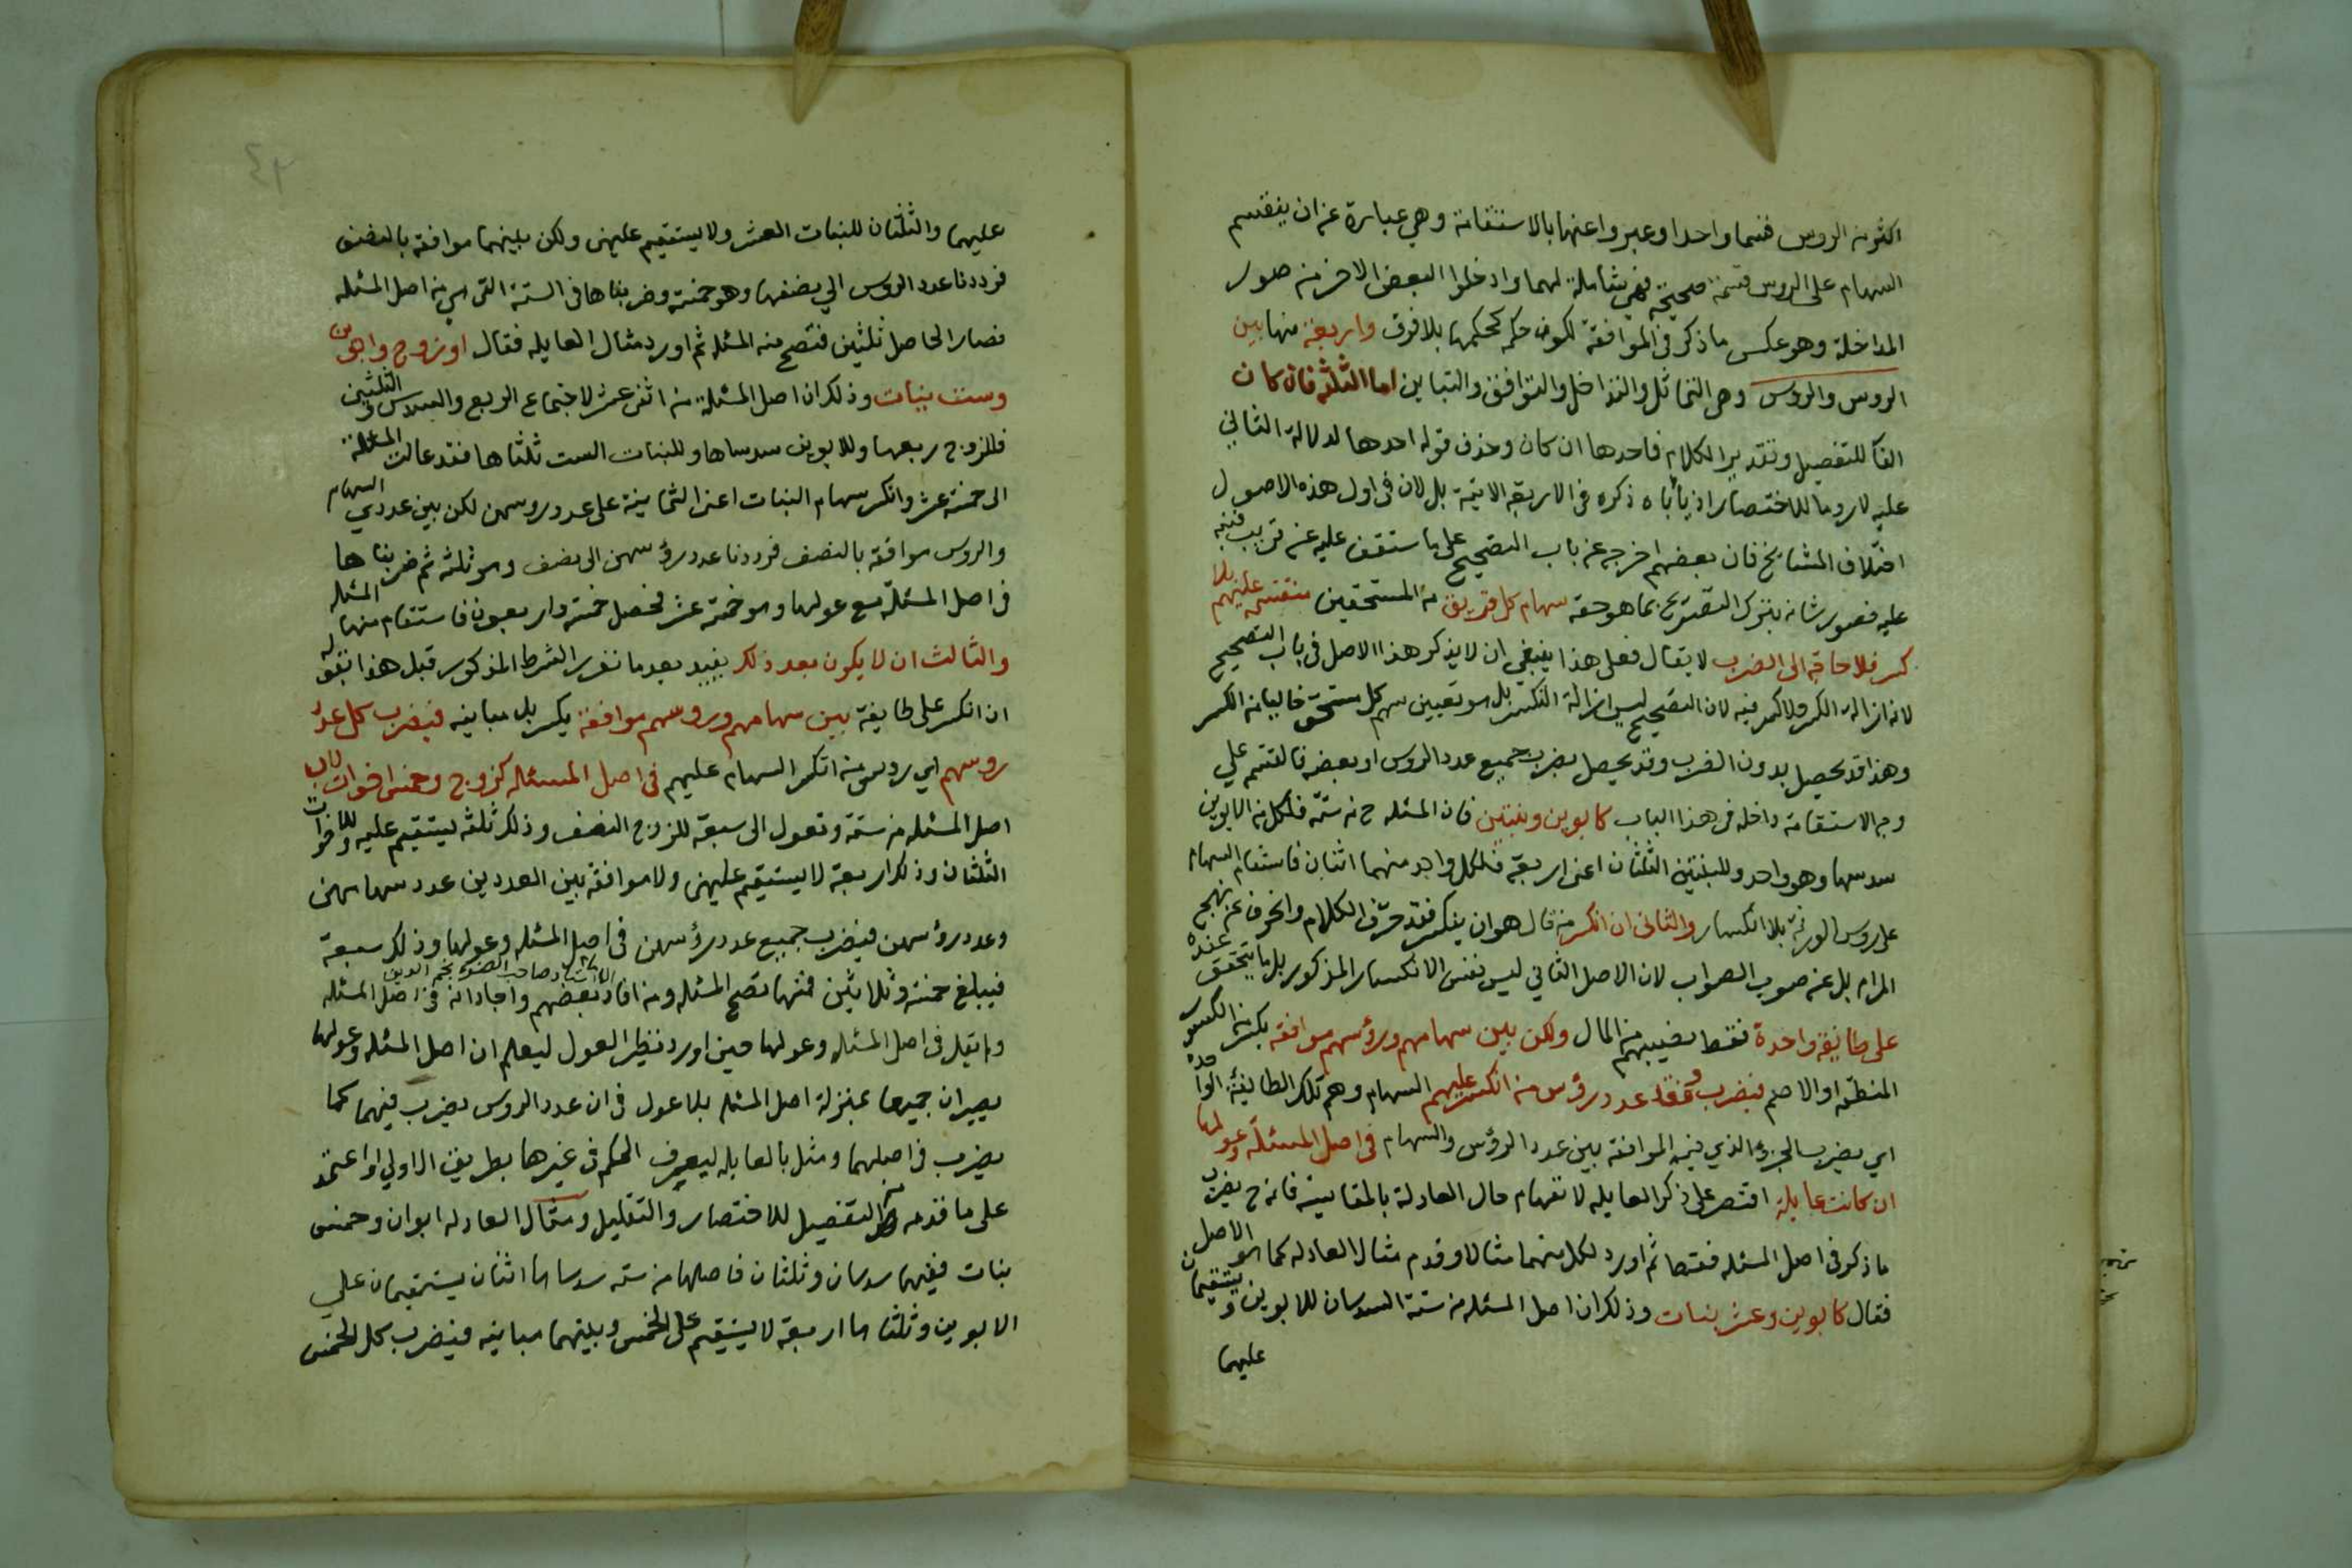 اكثر من الروس قسما واحدا وعبروا عنها بالاستقامة وهي عبارة عن ان ينقسم
السهام على الروس قسمة صحيحة فهي شاملة لهما وادخلوا البعض الاخر من صور
المداخلة وهو عكس ما ذكر في الموافقة لكون حكمه كحكمها بلا فرق واربعة منها بين
الروس والروس وهي التماثل والتداخل والتوافق والتباين اما الثلثة فان كان
الفا للتفصيل وتقدير الكلام فاحدها ان كان وحذف قوله احدها لدلالة الثاني
عليه لا روما للاختصار اذ يأباه ذكره في الاربعة الاتية بل لان في اول هذه الاصول
اختلاف المشايخ فان بعضهم اخرجه عن باب التصحيح على ما ستقف عليه عن قريب فنبه
عليه قصور شانه بترك التصريح بما هو حقه سهام كل فريق من المستحقين منقسمة عليهم بلا
كسر فلا حاجة الى الضرب لا يقال فعلى هذا ينبغي ان لا يذكر هذا الاصل في باب التصحيح
لانه ازالة الكسر ولا كسر فيه لان التصحيح ليس ازالة الكسر بل هو تعيين سهم كل مستحق خاليا من الكسر
وهذا قد يحصل بدون الضرب وقد يحصل بضرب جميع عدد الروس او بعضه فالقسمة على
وجه الاستقامة داخلة في هذا الباب كابوين وبنتين فان المسئلة ح من ستة فلكل من الابوين
سدسها وهو واحد وللبنتين الثلثان اعني اربعة فلكل واحد منهما اثنان فاستقام السهام
على روس الورثة بلا انكسار والثاني ان انكسر من قال هو ان ينكسر فقد حرف الكلام وانحرف عن نهج
المرام بل عن صوب الصواب لان الاصل الثاني ليس نفس الانكسار المذكور بل ما يتحقق عنده
على طائفة واحدة فقط نصيبهم من المال ولكن بين سهامهم ورؤسهم موافقة بكسر من الكسور
المنطقة او الاصم فيضرب وفق عدد رؤس من انكسر عليهم السهام وهم تلك الطائفة الواحدة
اي يضرب الجزء الذي فيه الموافقة بين عدد الرؤس والسهام في اصل المسئلة وعولها
ان كانت عايلة اقتصر على ذكر العايلة لانفهام حال العادلة بالمقايسة فانه ح يضرب
ما ذكر في اصل المسئلة فقط ثم اورد لكل منهما مثالا وقدم مثال العادلة كما هو الاصل
فقال كابوين وعشر بنات وذلك ان اصل المسئلة من ستة السدسان للابوين ويستقيمان
عليهما
٤٢
عليهما والثلثان للبنات العشر ولا يستقيم عليهن ولكن بينهما موافقة بالنصف
فرددنا عدد الروس الي نصفها وهو خمسة وضربناها في الستة التي هي من اصل المسئلة
فصار الحاصل ثلثين فتصح منه المسئلة ثم اورد مثال العايلة فقال او زوج وابوين
وست بنات وذلك ان اصل المسئلة من اثني عشر لاجتماع الربع والسدس والثلثين
فللزوج ربعها وللابوين سدساها وللبنات الست ثلثاها فقد عالت المسئلة
الى خمسة عشر وانكسر سهام البنات اعني الثمانية على عدد روسهن لكن بين عددي السهام
والروس موافقة بالنصف فرددنا عدد رؤسهن الى نصف وهو ثلثة ثم ضربناها
في اصل المسئلة مع عولها وهو خمسة عشر فحصل خمسة واربعون فاستقام منها المسئلة
والثالث ان لا يكون بعد ذلك يفيد بعد ما تقرر الشرط المذكور قبل هذا بقوله
ان انكسر على طايفة بين سهامهم وروسهم موافقة بكسر بل مباينة فيضرب كل عدد
روسهم اي روس من انكسر السهام عليهم في اصل المسئلة كزوج وخمس اخوات لاب
اصل المسئلة من ستة وتعول الى سبعة للزوج النصف وذلك ثلثة يستقيم عليه وللاخوات
الثلثان وذلك اربعة لا يستقيم عليهن ولا موافقة بين العددين عدد سهامهن
وعدد رؤسهن فيضرب جميع عدد رؤسهن في اصل المسئلة وعولها وذلك سبعة
فيبلغ خمسة وثلاثين فمنها تصح المسئلة ومن افاد بعضهم واجاد انه في اصل المسئلة
الاستاد صاحب الضوء نجم الدين
ولم يقل في اصل المسئلة وعولها حين اورد نظير العول ليعلم ان اصل المسئلة وعولها
يصيران جميعا بمنزلة اصل المسئلة بلا عول في ان عدد الروس يضرب فيهما كما
يضرب في اصلها ومثل بالعايلة ليعرف الحكم في غيرها بطريق الاولي او اعتمد
على ما قدمه من التفصيل للاختصار والتقليل ومثال العادلة ابوان وخمس
بنات ففيها سدسان وثلثان فاصلها من ستة سدساها اثنان يستقيمان علي
الابوين وثلثاها اربعة لا يستقيم على الخمس وبينهما مباينة فيضرب كل الخمس